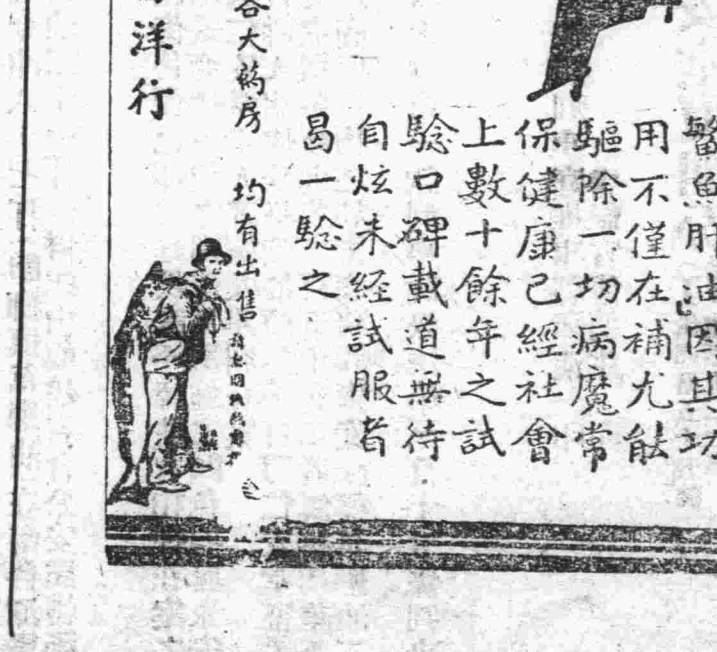 鱉魚肝油因其功
用不僅在補尤能
驅除一切病魔常
保健康已經社會
上數十餘年之試
驗口碑載道無待
自炫未經試服者
曷一驗之
各大葯房 均有出售
洋行